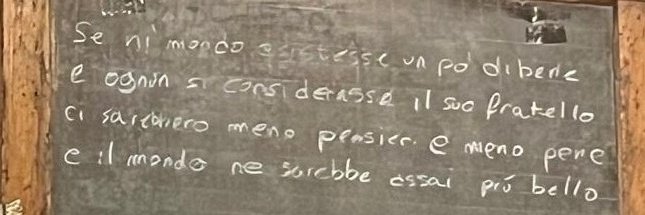 Se ni mondo esistesse un po' di bene
e ognun si considerasse il suo fratello
ci sarebbero meno pensier. e meno pene
e il mondo ne sarebbe assai più bello